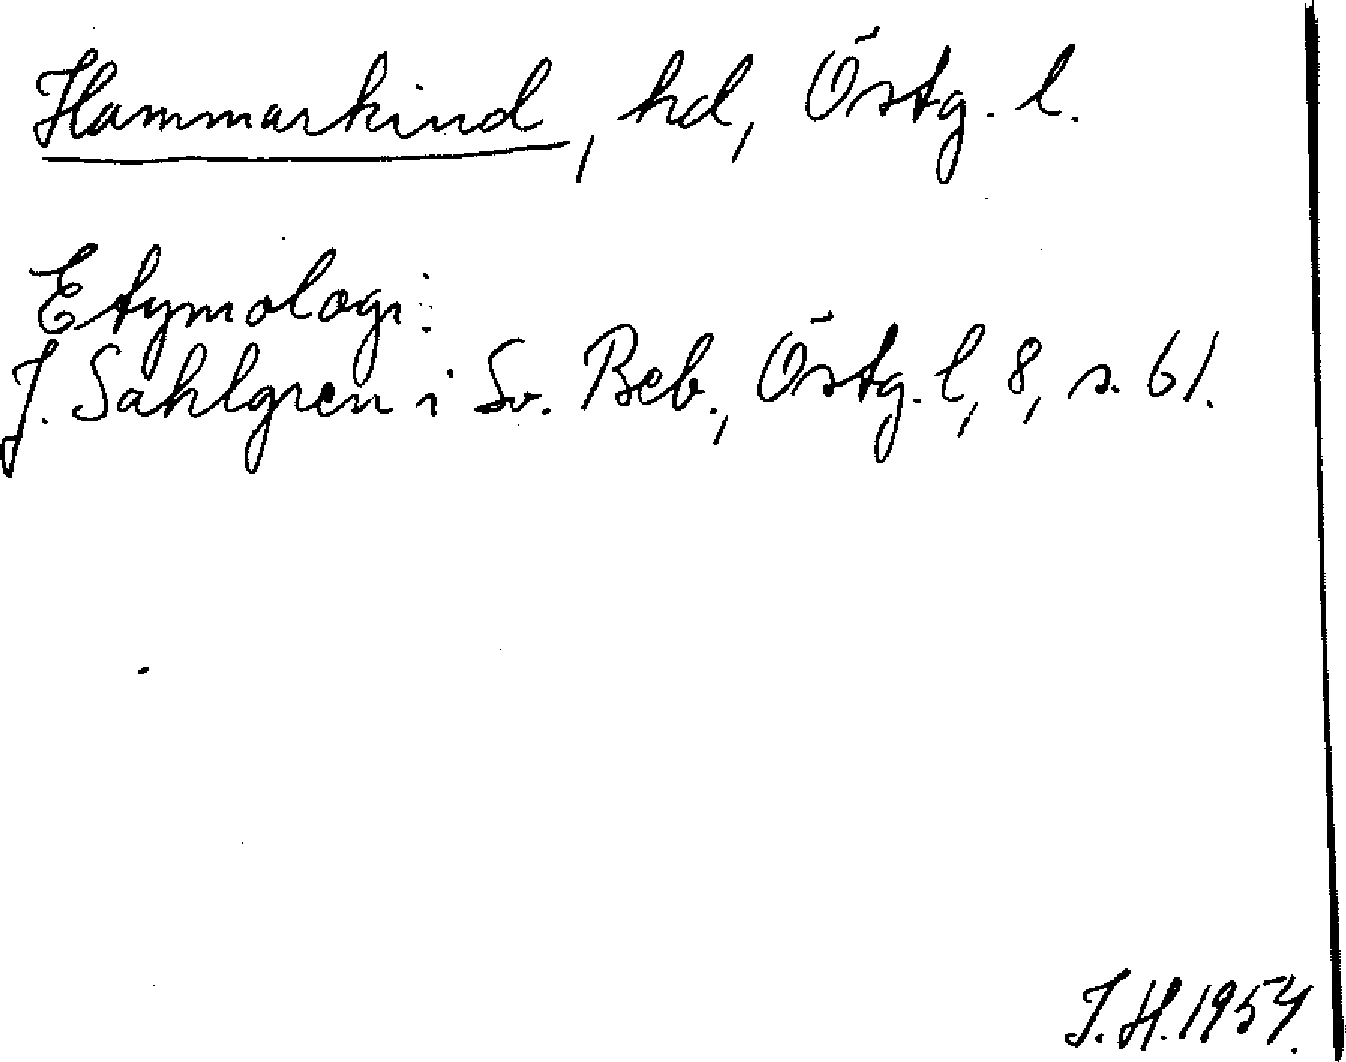 Hammarkind, hd, Östg. l.
Etymologi:
J. Sahlgren i Sv. Beb., Östg. l, 8, s. 61.
I. H. 1954.